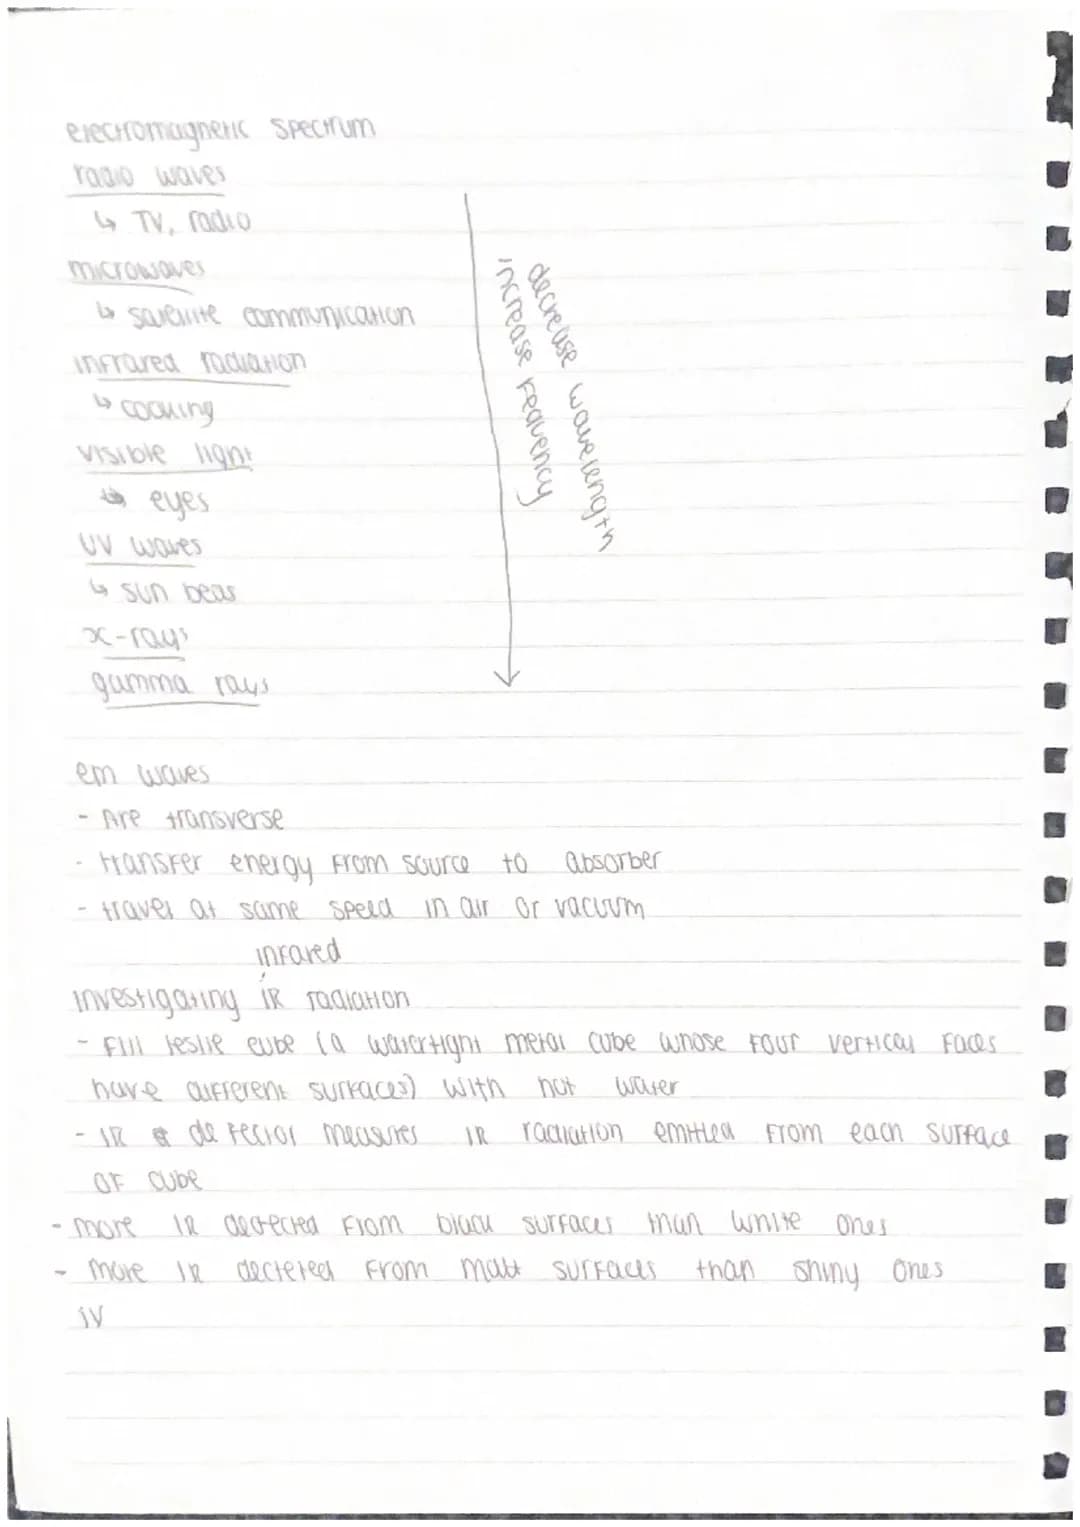 electromagnetic spectrum
radio waves
↳ TV, radio
microwaves
↳ satellite communication
infrared radiation
↳ cooking
visible light
↳ eyes
UV waves
↳ sun beds
x-rays
gamma rays
decrease wavelength
increase freqvency
em waves
- Are transverse
- transfer energy from source to absorber
- travel at same speed in air or vacuum
infared
investigating IR radiation
- Fill leslie cube (a watertight metal cube whose four vertical faces
have different surfaces) with hot water
- IR detector measures IR radiation emitted from each surface
of cube
- more IR detected from black surfaces than white ones
- more IR dectered from matt surfaces than shiny ones
iv